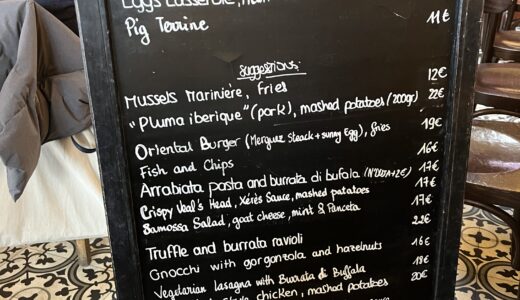 Eggs Casserole, Ham
Pig Terrine 11€
Suggestions:
Mussels Marinière, fries 12€
"Pluma iberique" (pork), mashed potatoes (200gr) 22€
Oriental Burger (Merguez Steack + sunny Egg), fries 19€
Fish and Chips 16€
Arrabiata pasta and burrata di bufola 17€
Crispy Veal's Head, Xérès Sauce, mashed potatoes 17€
Samossa Salad, goat cheese, mint & Panceta 17€
Truffle and burrata ravioli 23€
Gnocchi with gorgonzola and hazelnuts 16€
Vegetarian lasagna with Burrata di Buffala 18€
Style chicken, mashed potatoes 20€